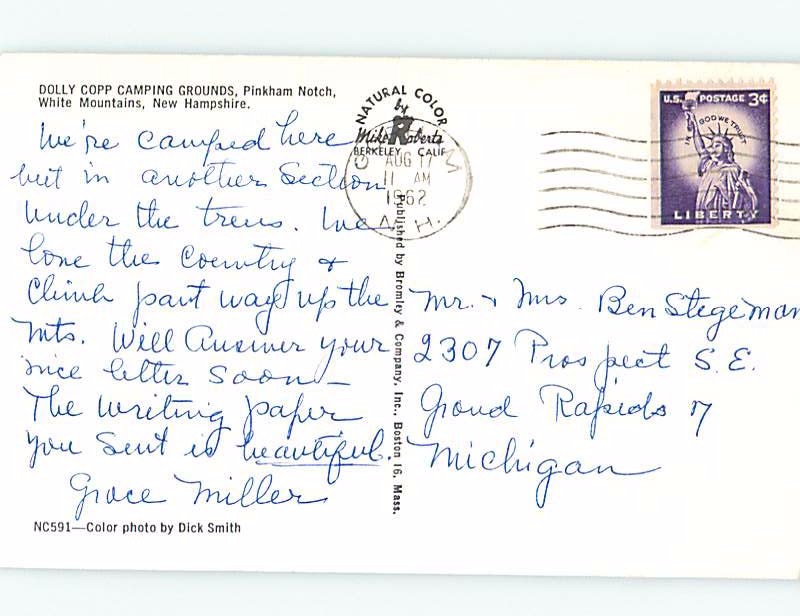 DOLLY COPP CAMPING GROUNDS, Pinkham Notch,
White Mountains, New Hampshire.
We're camped here
but in another Section
under the trees. We
love the Country &
Climb part way up the
Mts. Will Answer your
nice letter soon—
The writing paper
you sent is beautiful.
Grace Miller
NC591—Color photo by Dick Smith
NATURAL COLOR
by
Mike Roberts
BERKELEY, CALIF.
AUG 17
11 AM
1962
Published by Bromley & Company, Inc., Boston 16, Mass.
U.S. POSTAGE 3¢
IN GOD WE TRUST
LIBERTY
Mr. & Mrs. Ben Stegeman
2307 Prospect S.E.
Grand Rapids 7
Michigan